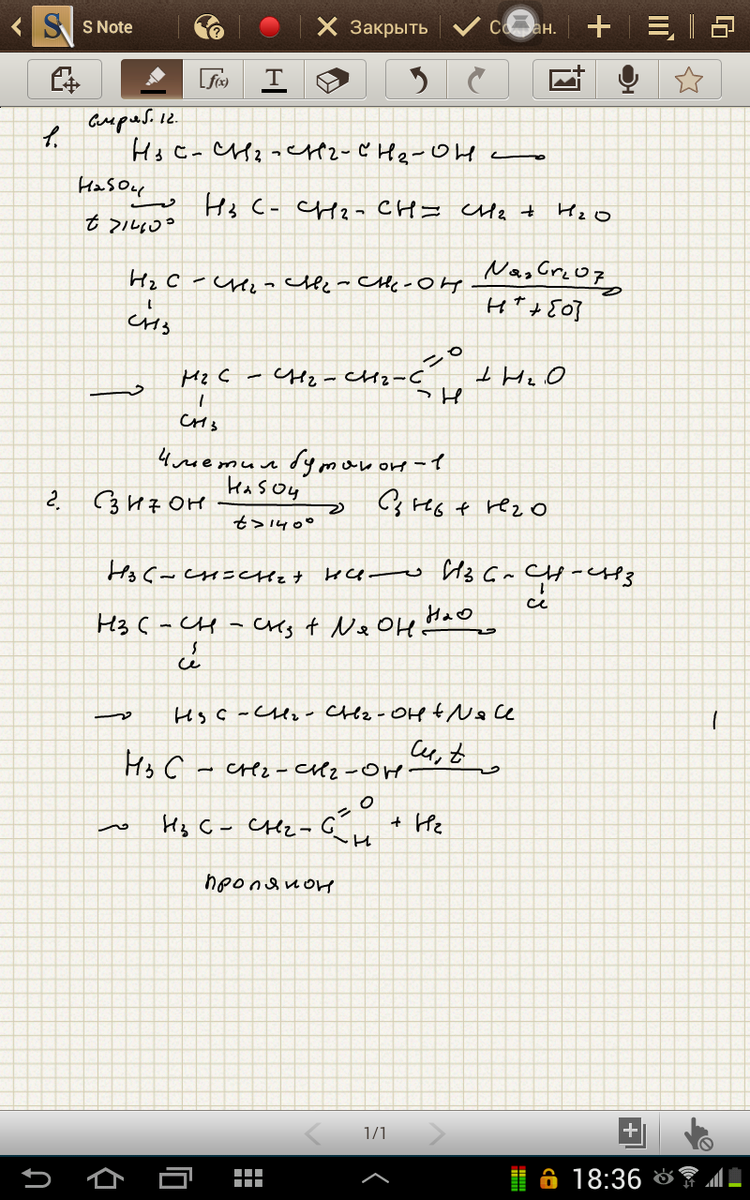 S Note
Закрыть
Сохран.
f(x)
T
1.
H3C-CH2-CH2-CH2-OH →
H2SO4
t>140° → H3C-CH2-CH=CH2+H2O
H2C-CH2-CH2-CH2-OH Na2Cr2O7 →
CH3 H++[O]
→ H2C-CH2-CH2-C=O -H +H2O
CH3
4метил бутанон-1
2. C3H7OH H2SO4 → t>140° C3H6+H2O
H3C-CH=CH2+HCl → H3C-CH-CH3
Cl
H3C-CH-CH3+NaOH H2O →
Cl
→ H3C-CH2-CH2-OH+NaCl
H3C-CH2-CH2-OH Cu,t →
→ H3C-CH2-C=O -H +H2
пропанон
1/1
18:36